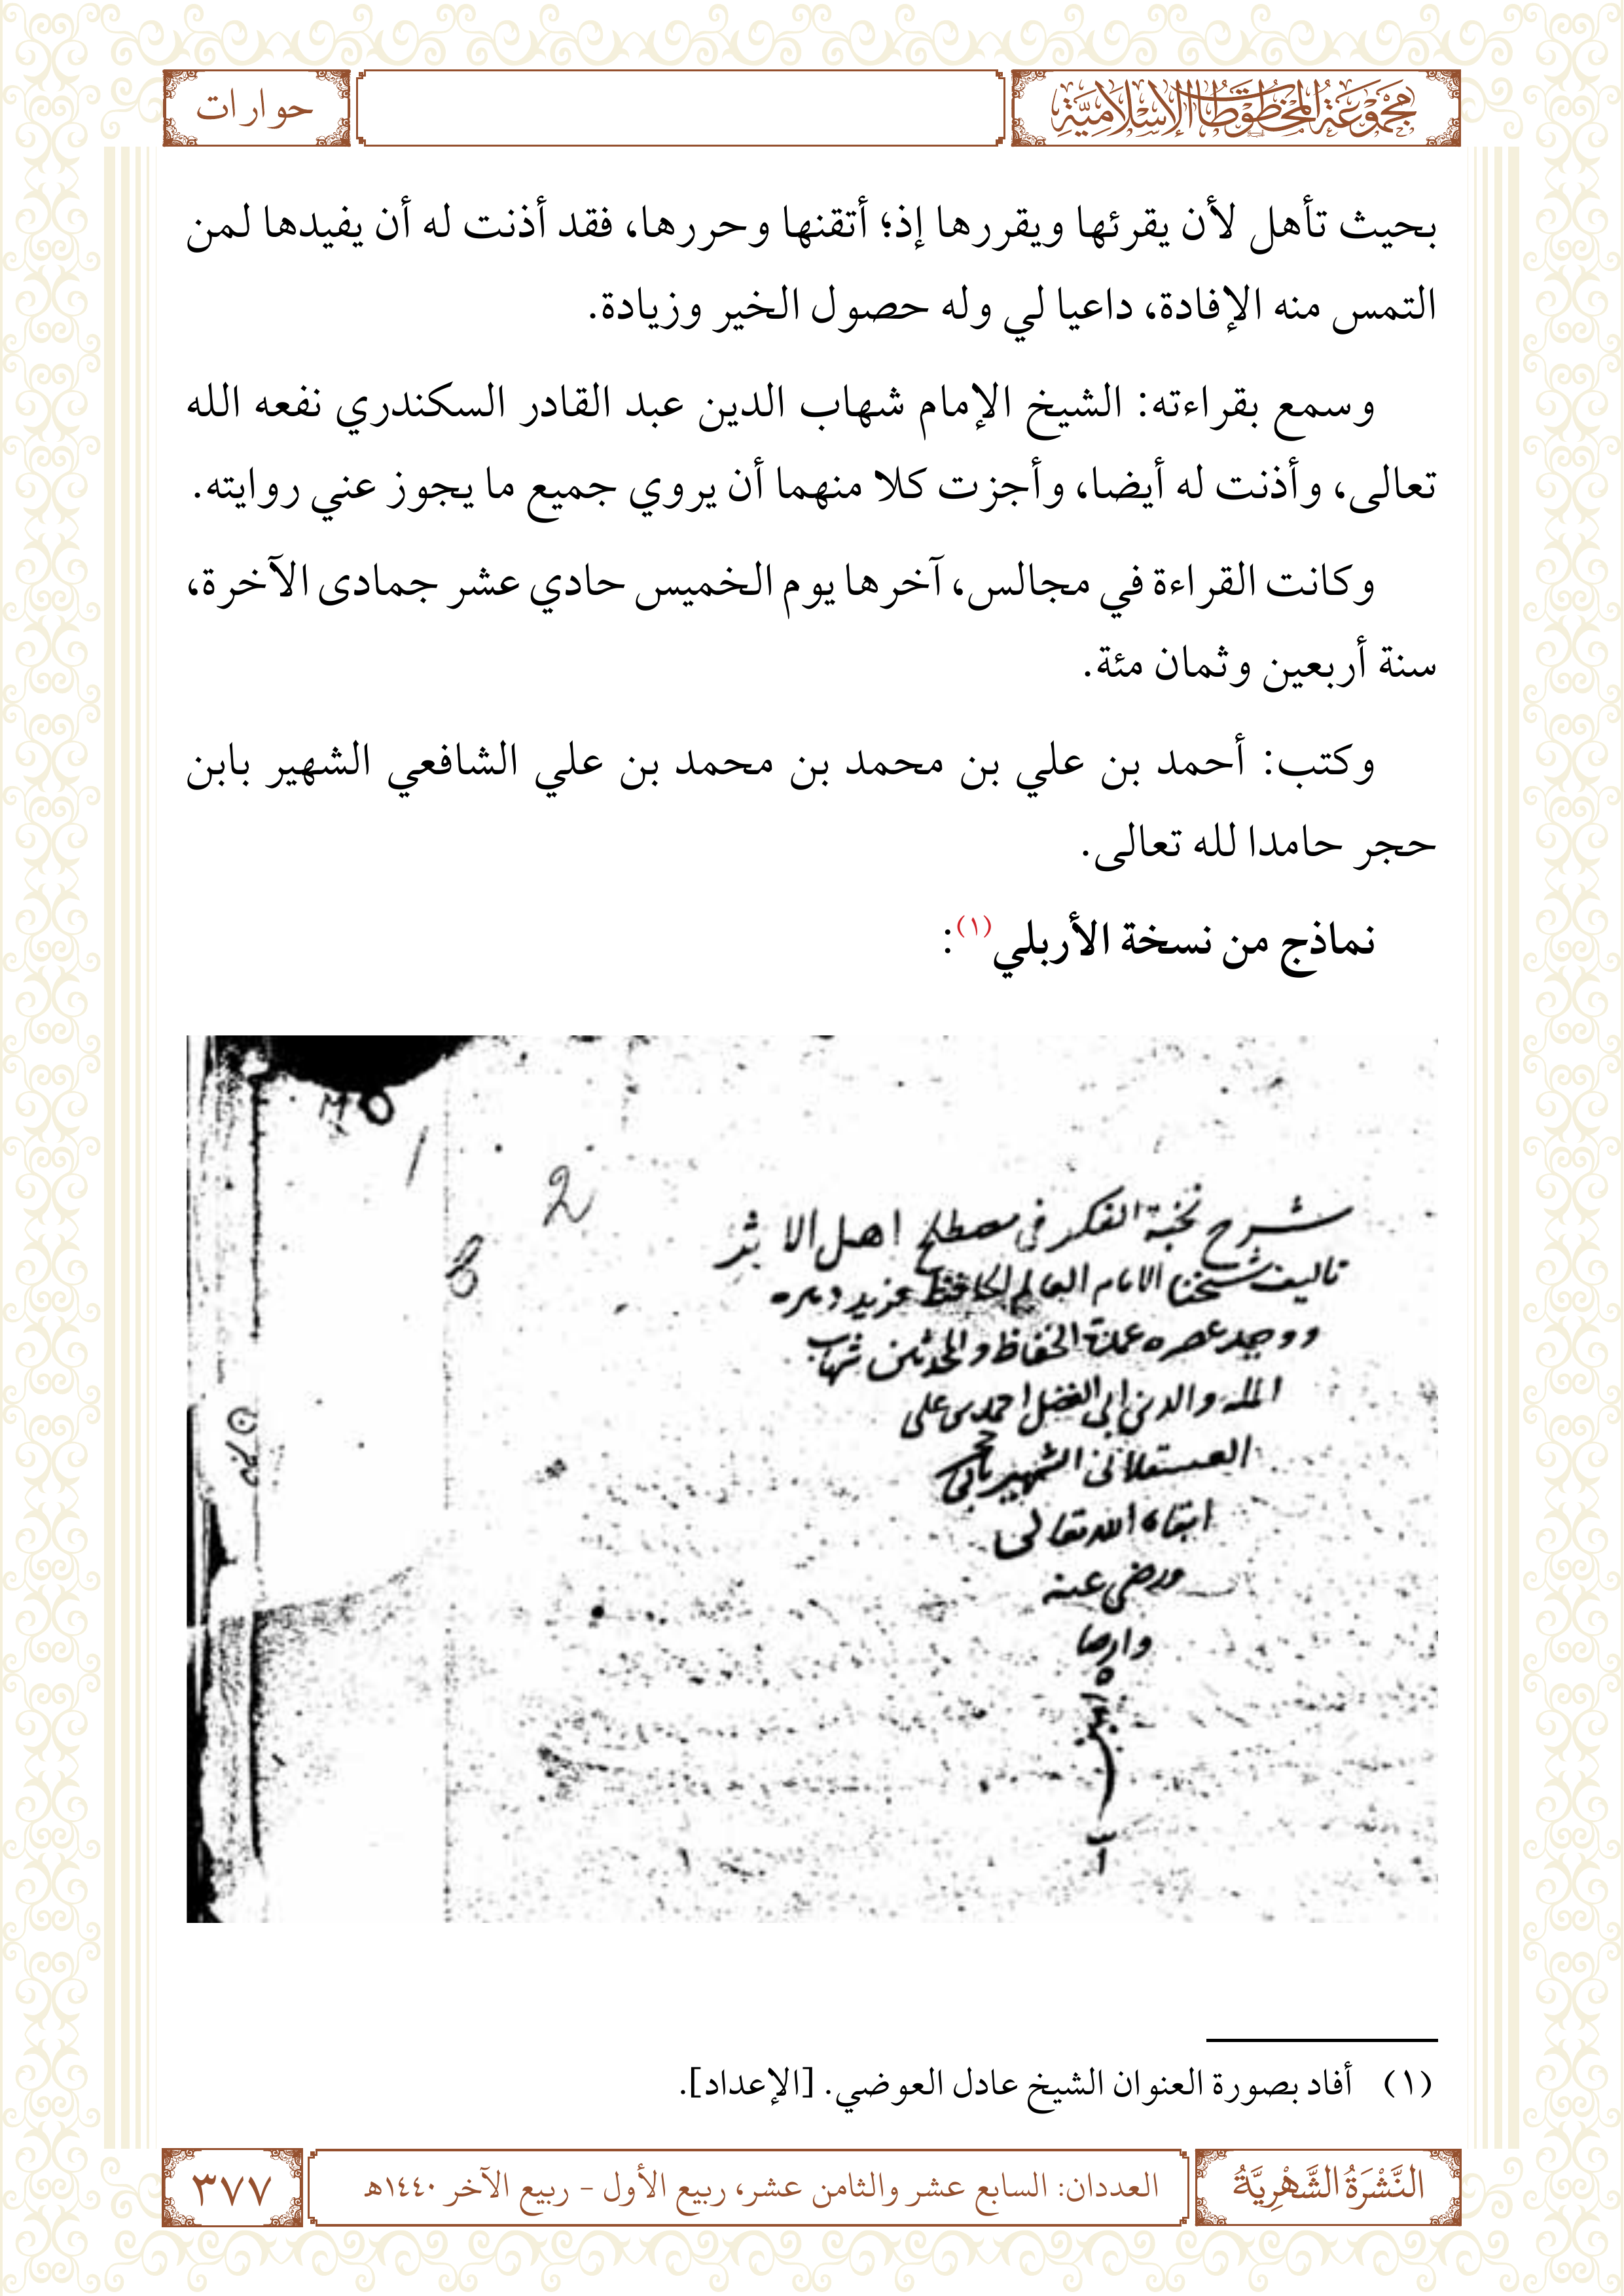 مَجْمُوعَةُ المَخْطُوطَاتِ الإِسْلَامِيَّةِ
حوارات
بحيث تأهل لأن يقرئها ويقررها إذ؛ أتقنها وحررها، فقد أذنت له أن يفيدها لمن
التمس منه الإفادة، داعيا لي وله حصول الخير وزيادة.
وسمع بقراءته: الشيخ الإمام شهاب الدين عبد القادر السكندري نفعه الله
تعالى، وأذنت له أيضا، وأجزت كلا منهما أن يروي جميع ما يجوز عني روايته.
وكانت القراءة في مجالس، آخرها يوم الخميس حادي عشر جمادى الآخرة،
سنة أربعين وثمان مئة.
وكتب: أحمد بن علي بن محمد بن محمد بن علي الشافعي الشهير بابن
حجر حامدا لله تعالى.
نماذج من نسخة الأربلي(١):
2
شرح نخبة الفكر في مصطلح اهل الاثر
تاليف شيخنا الامام العالم الحافظ فريد دهره
ووحيد عصره عمدة الحفاظ والمحدثين شهاب
الملة والدين ابي الفضل احمد بن علي
العسقلاني الشهير بابن حجر
ابقاه الله تعالى
ورضي عنه
وارضاه
امين
(١) أفاد بصورة العنوان الشيخ عادل العوضي. [الإعداد].
النَّشْرَةُ الشَّهْرِيَّةُ
العددان: السابع عشر والثامن عشر، ربيع الأول - ربيع الآخر ١٤٤٠هـ
٣٧٧